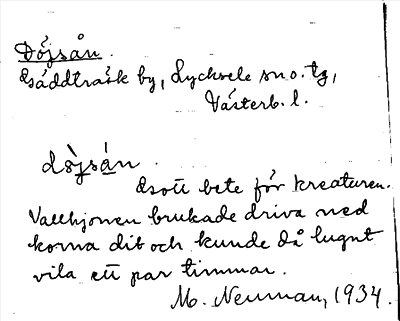 Döjsån.
Gäddträsk by, Lycksele sn o. tg,
Västerb. l.
döjsán.
Gott bete för kreaturen.
Vallhjonen brukade driva ned
korna dit och kunde då lugnt
vila ett par timmar.
M. Neuman, 1934.